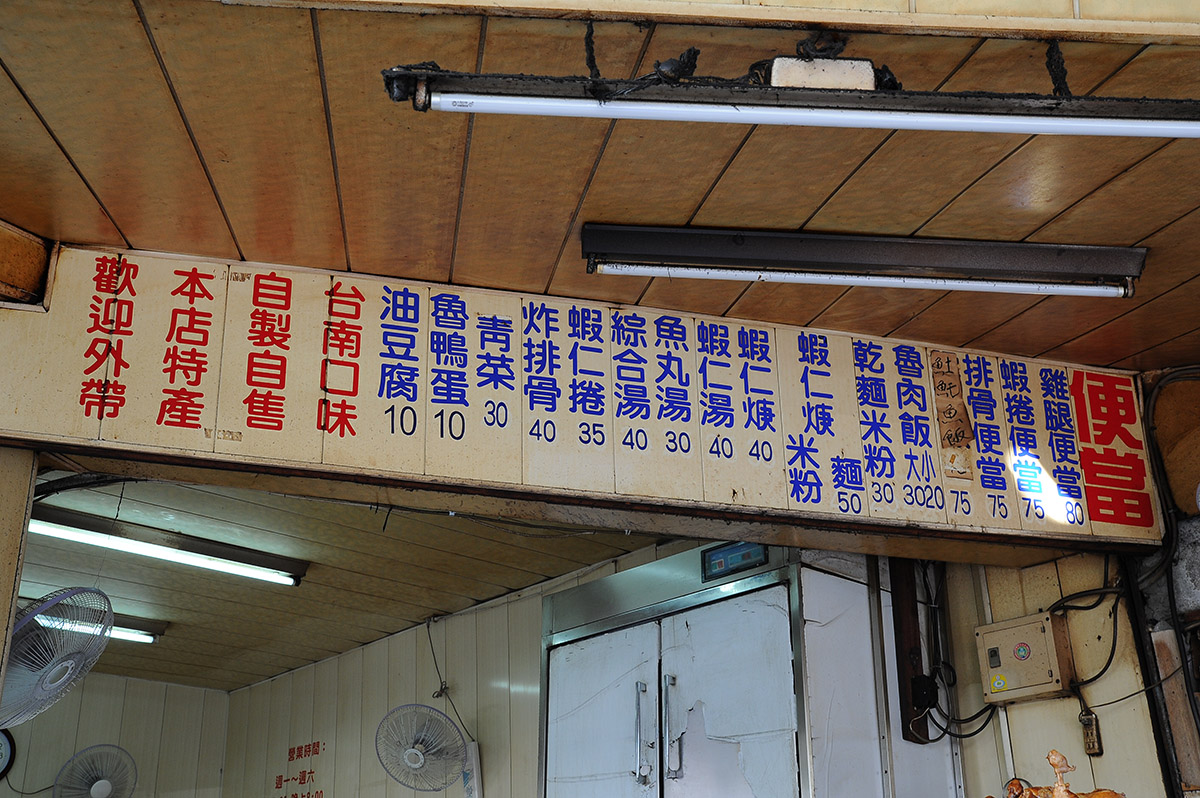 便當
雞腿便當 80
蝦捲便當 75
排骨便當 75
魠魚飯 75
魯肉飯 大30 小20
乾麵米粉 30
蝦仁焿 米粉 麵 50
蝦仁焿 40
蝦仁湯 40
魚丸湯 30
綜合湯 40
蝦仁捲 35
炸排骨 40
青菜 30
魯鴨蛋 10
油豆腐 10
台南口味
自製自售
本店特產
歡迎外帶
營業時間：
週一～週六